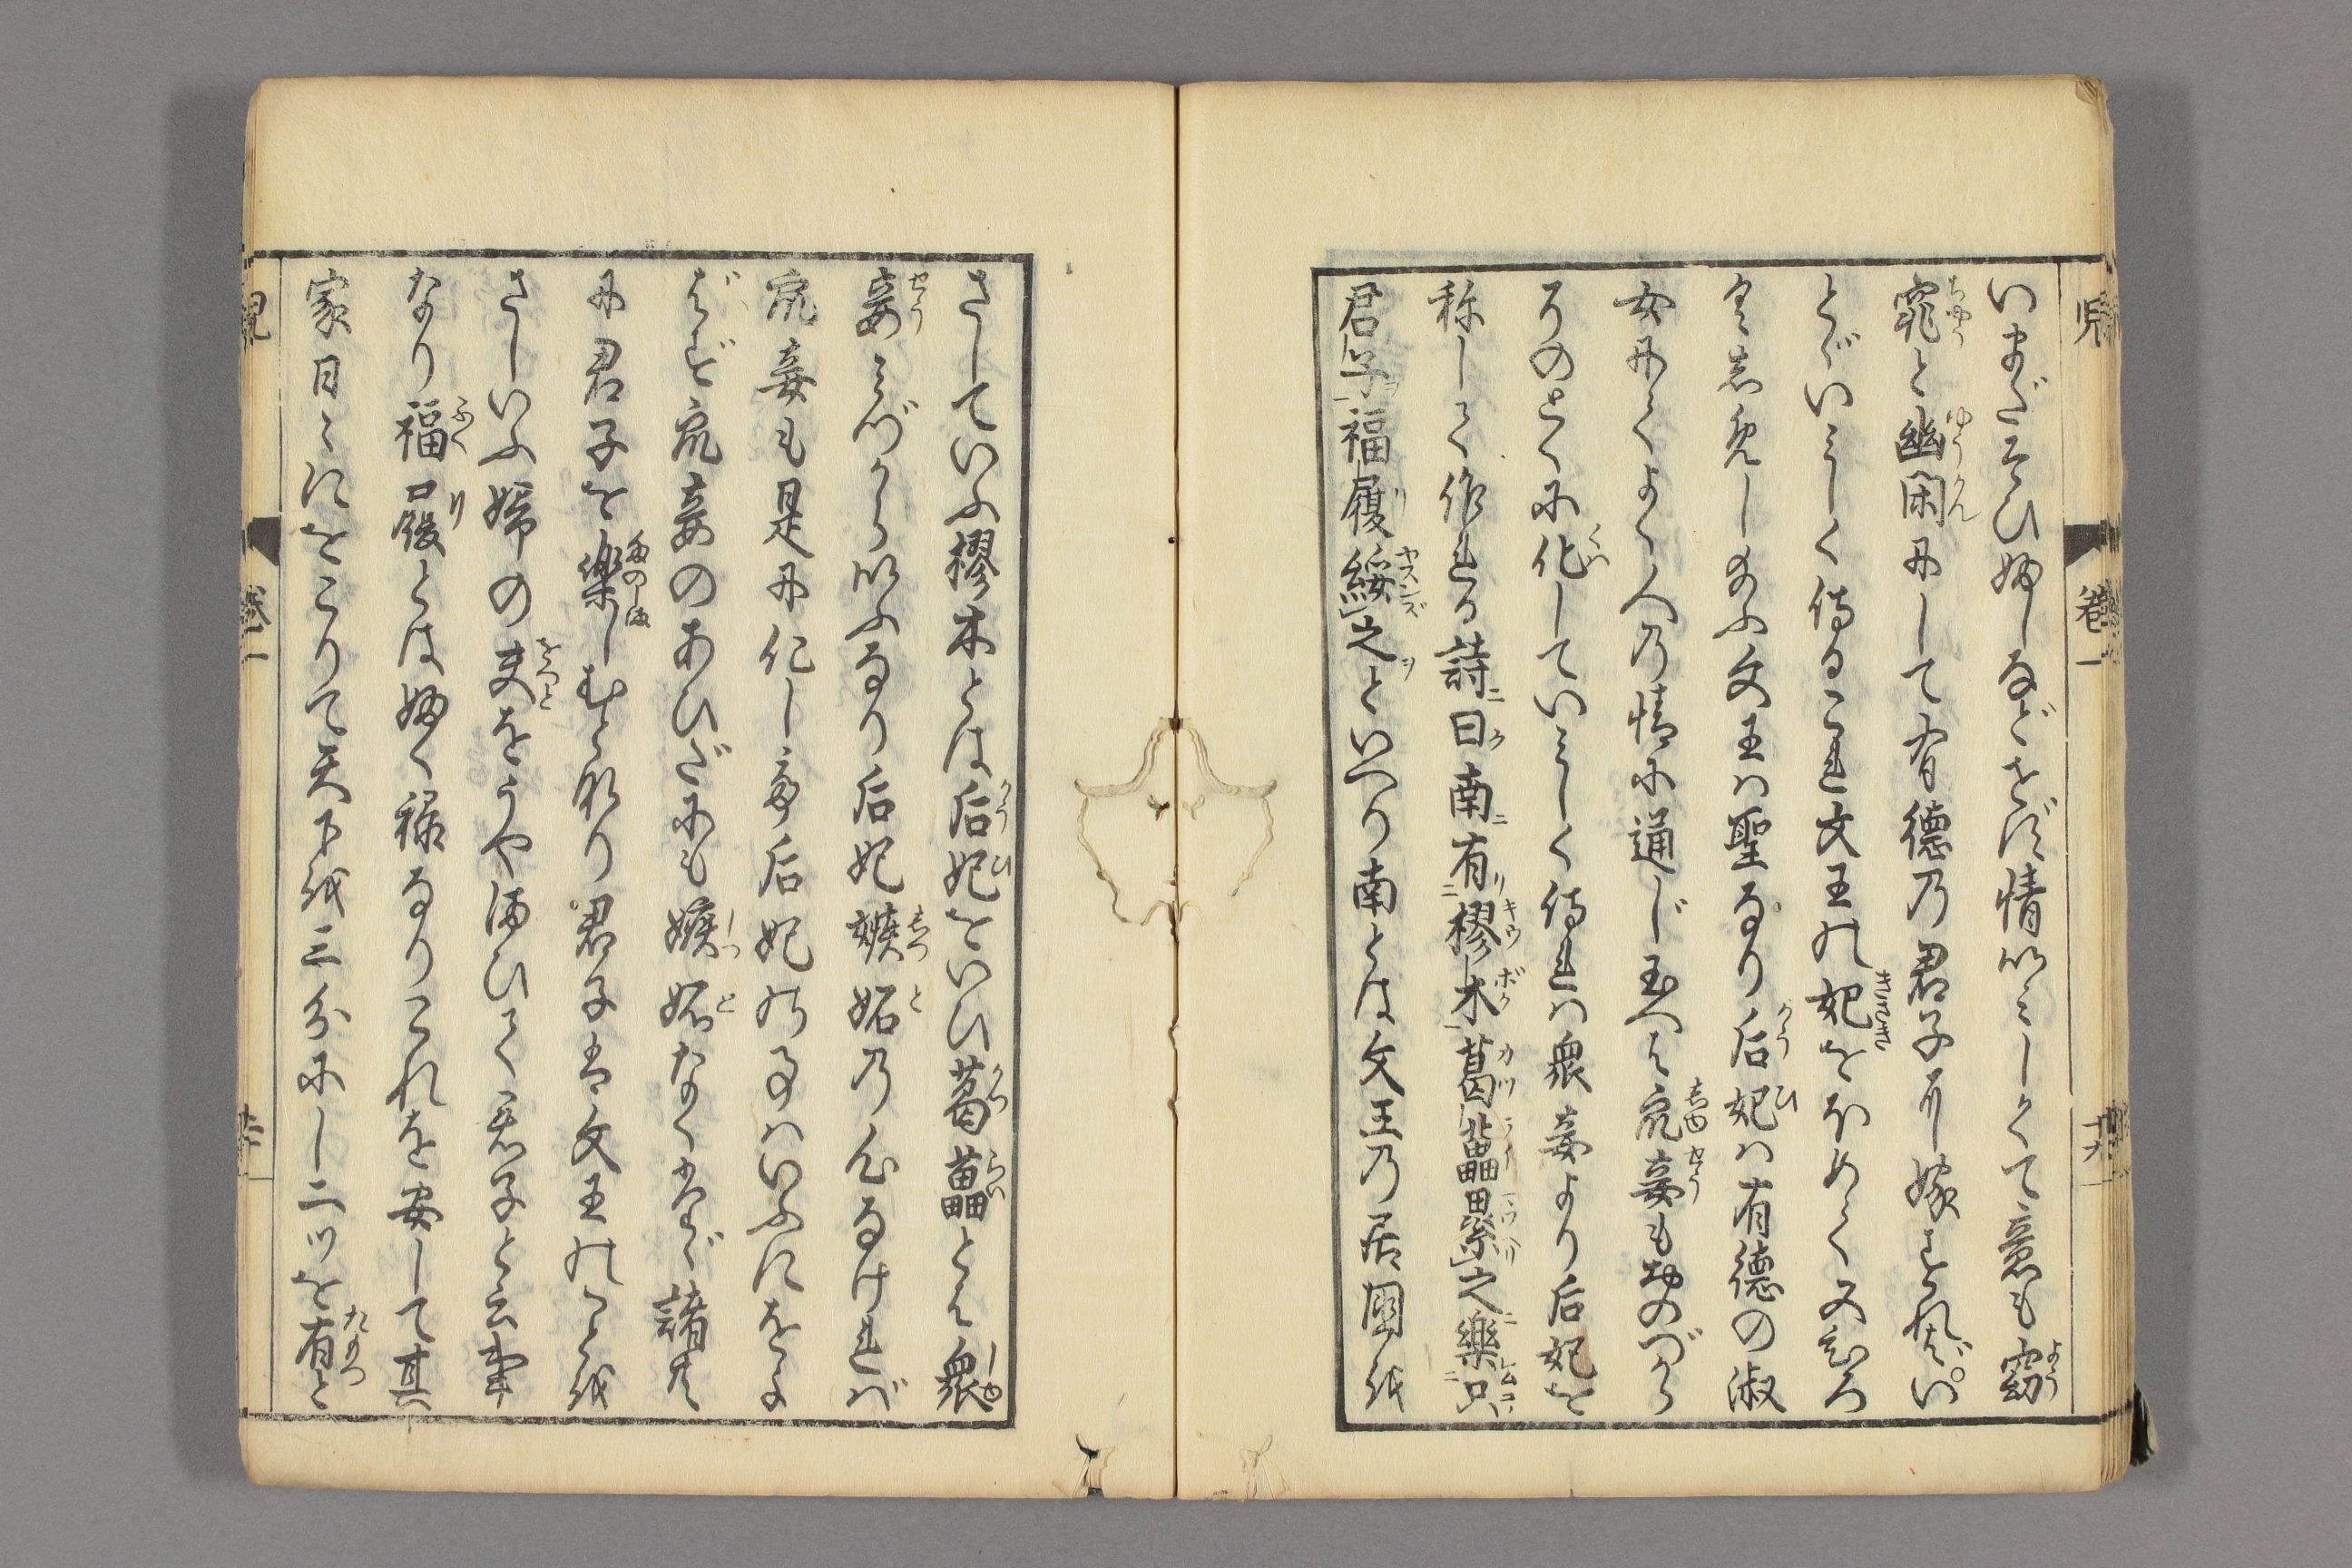 いまだそひ婦しなどせず情いみしくて意も窈
窕と幽閑にして有徳乃君子に嫁すればい
とゞいみしく侍るこれ文王の妃をほめて又むろ
く志免し給ふ文王ハ聖なり后妃ハ有徳の淑
女にてよく人乃情に通じ玉へは衆妾もおのづから
そのとくに化していみしく侍れハ衆妾より后妃を
称して作れる詩曰南有樛木葛藟纍之樂只
君子福履綏之といへり南とは文王乃居國を
さしていふ樛木とは后妃をいひ葛藟とは衆
妾みづからいふなり后妃嫉妬乃心なけれバ
衆妾も是に化し斉后妃のなハいふにをよ
ばず衆妾のあひだにも嫉妬なくゆへ諸共
に君子を樂しむと也君子は文王のことを
さしいふ婦の夫をうやまひて君子と云事
なり福履とは婦く禄なりこれを安して其
家日ミにをこりて天下を三分にし二ツを有と
児
巻一
十九